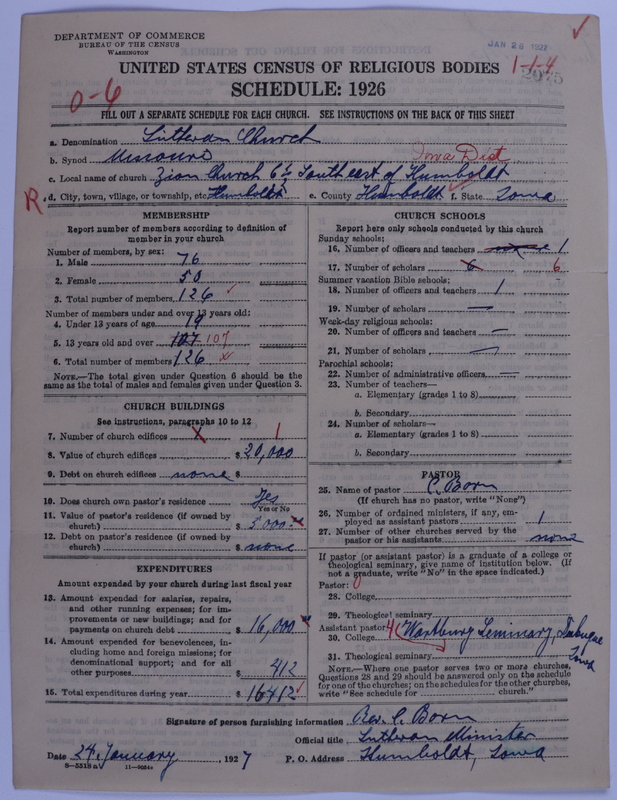 DEPARTMENT OF COMMERCE
BUREAU OF THE CENSUS
WASHINGTON
JAN 26 1927
1-1-4
UNITED STATES CENSUS OF RELIGIOUS BODIES
SCHEDULE: 1926
0-6
FILL OUT A SEPARATE SCHEDULE FOR EACH CHURCH. SEE INSTRUCTIONS ON THE BACK OF THIS SHEET
a. Denomination Lutheran Church
b. Synod Missouri Iowa Dist
c. Local name of church Zion Church 6½ Southeast of Humboldt
R d. City, town, village, or township, etc. Humboldt e. County Humboldt f. State Iowa
MEMBERSHIP
Report number of members according to definition of
member in your church
Number of members, by sex:
1. Male 76
2. Female 50
3. Total number of members 126
Number of members under and over 13 years old:
4. Under 13 years of age 19
5. 13 years old and over 107 107
6. Total number of members 126
NOTE.—The total given under Question 6 should be
same as the total of males and females given under Question 3.
CHURCH BUILDINGS
See instructions, paragraphs 10 to 12
7. Number of church edifices 1
8. Value of church edifices $ 20,000
9. Debt on church edifices none $
10. Does church own pastor's residence Yes
Yes or No
11. Value of pastor's residence (if owned by
church) $ 5000
12. Debt on pastor's residence (if owned by
church) $ none
EXPENDITURES
Amount expended by your church during last fiscal year
13. Amount expended for salaries, repairs,
and other running expenses; for im-
provements or new buildings; and for
payments on church debt $ 16,000
14. Amount expended for benevolences, in-
cluding home and foreign missions; for
denominational support; and for all
other purposes $ 412
15. Total expenditures during year $ 16412
CHURCH SCHOOLS
Report here only schools conducted by this church
Sunday schools:
16. Number of officers and teachers 1
17. Number of scholars 6 6
Summer vacation Bible schools:
18. Number of officers and teachers 1
19. Number of scholars —
Week-day religious schools:
20. Number of officers and teachers —
21. Number of scholars —
Parochial schools:
22. Number of administrative officers —
23. Number of teachers—
a. Elementary (grades 1 to 8)
b. Secondary
24. Number of scholars—
a. Elementary (grades 1 to 8)
b. Secondary
PASTOR
25. Name of pastor C. Born
(If church has no pastor, write "None")
26. Number of ordained ministers, if any, em-
ployed as assistant pastors 1
27. Number of other churches served by the
pastor or his assistants none
If pastor (or assistant pastor) is a graduate of a college or
theological seminary, give name of institution below. (If
not a graduate, write "No" in the space indicated.)
Pastor:
28. College
29. Theological seminary
Assistant pastor:
30. College Wartburg Seminary, Dubuque
Iowa
31. Theological seminary
NOTE.—Where one pastor serves two or more churches,
Questions 28 and 29 should be answered only on the schedule
for one of the churches; on the schedules for the other churches,
write "See schedule for church."
Signature of person furnishing information Rev. C. Born
Official title Lutheran Minister
Date 24. January, 1927 P. O. Address Humboldt, Iowa
8—5518 a 11—9064